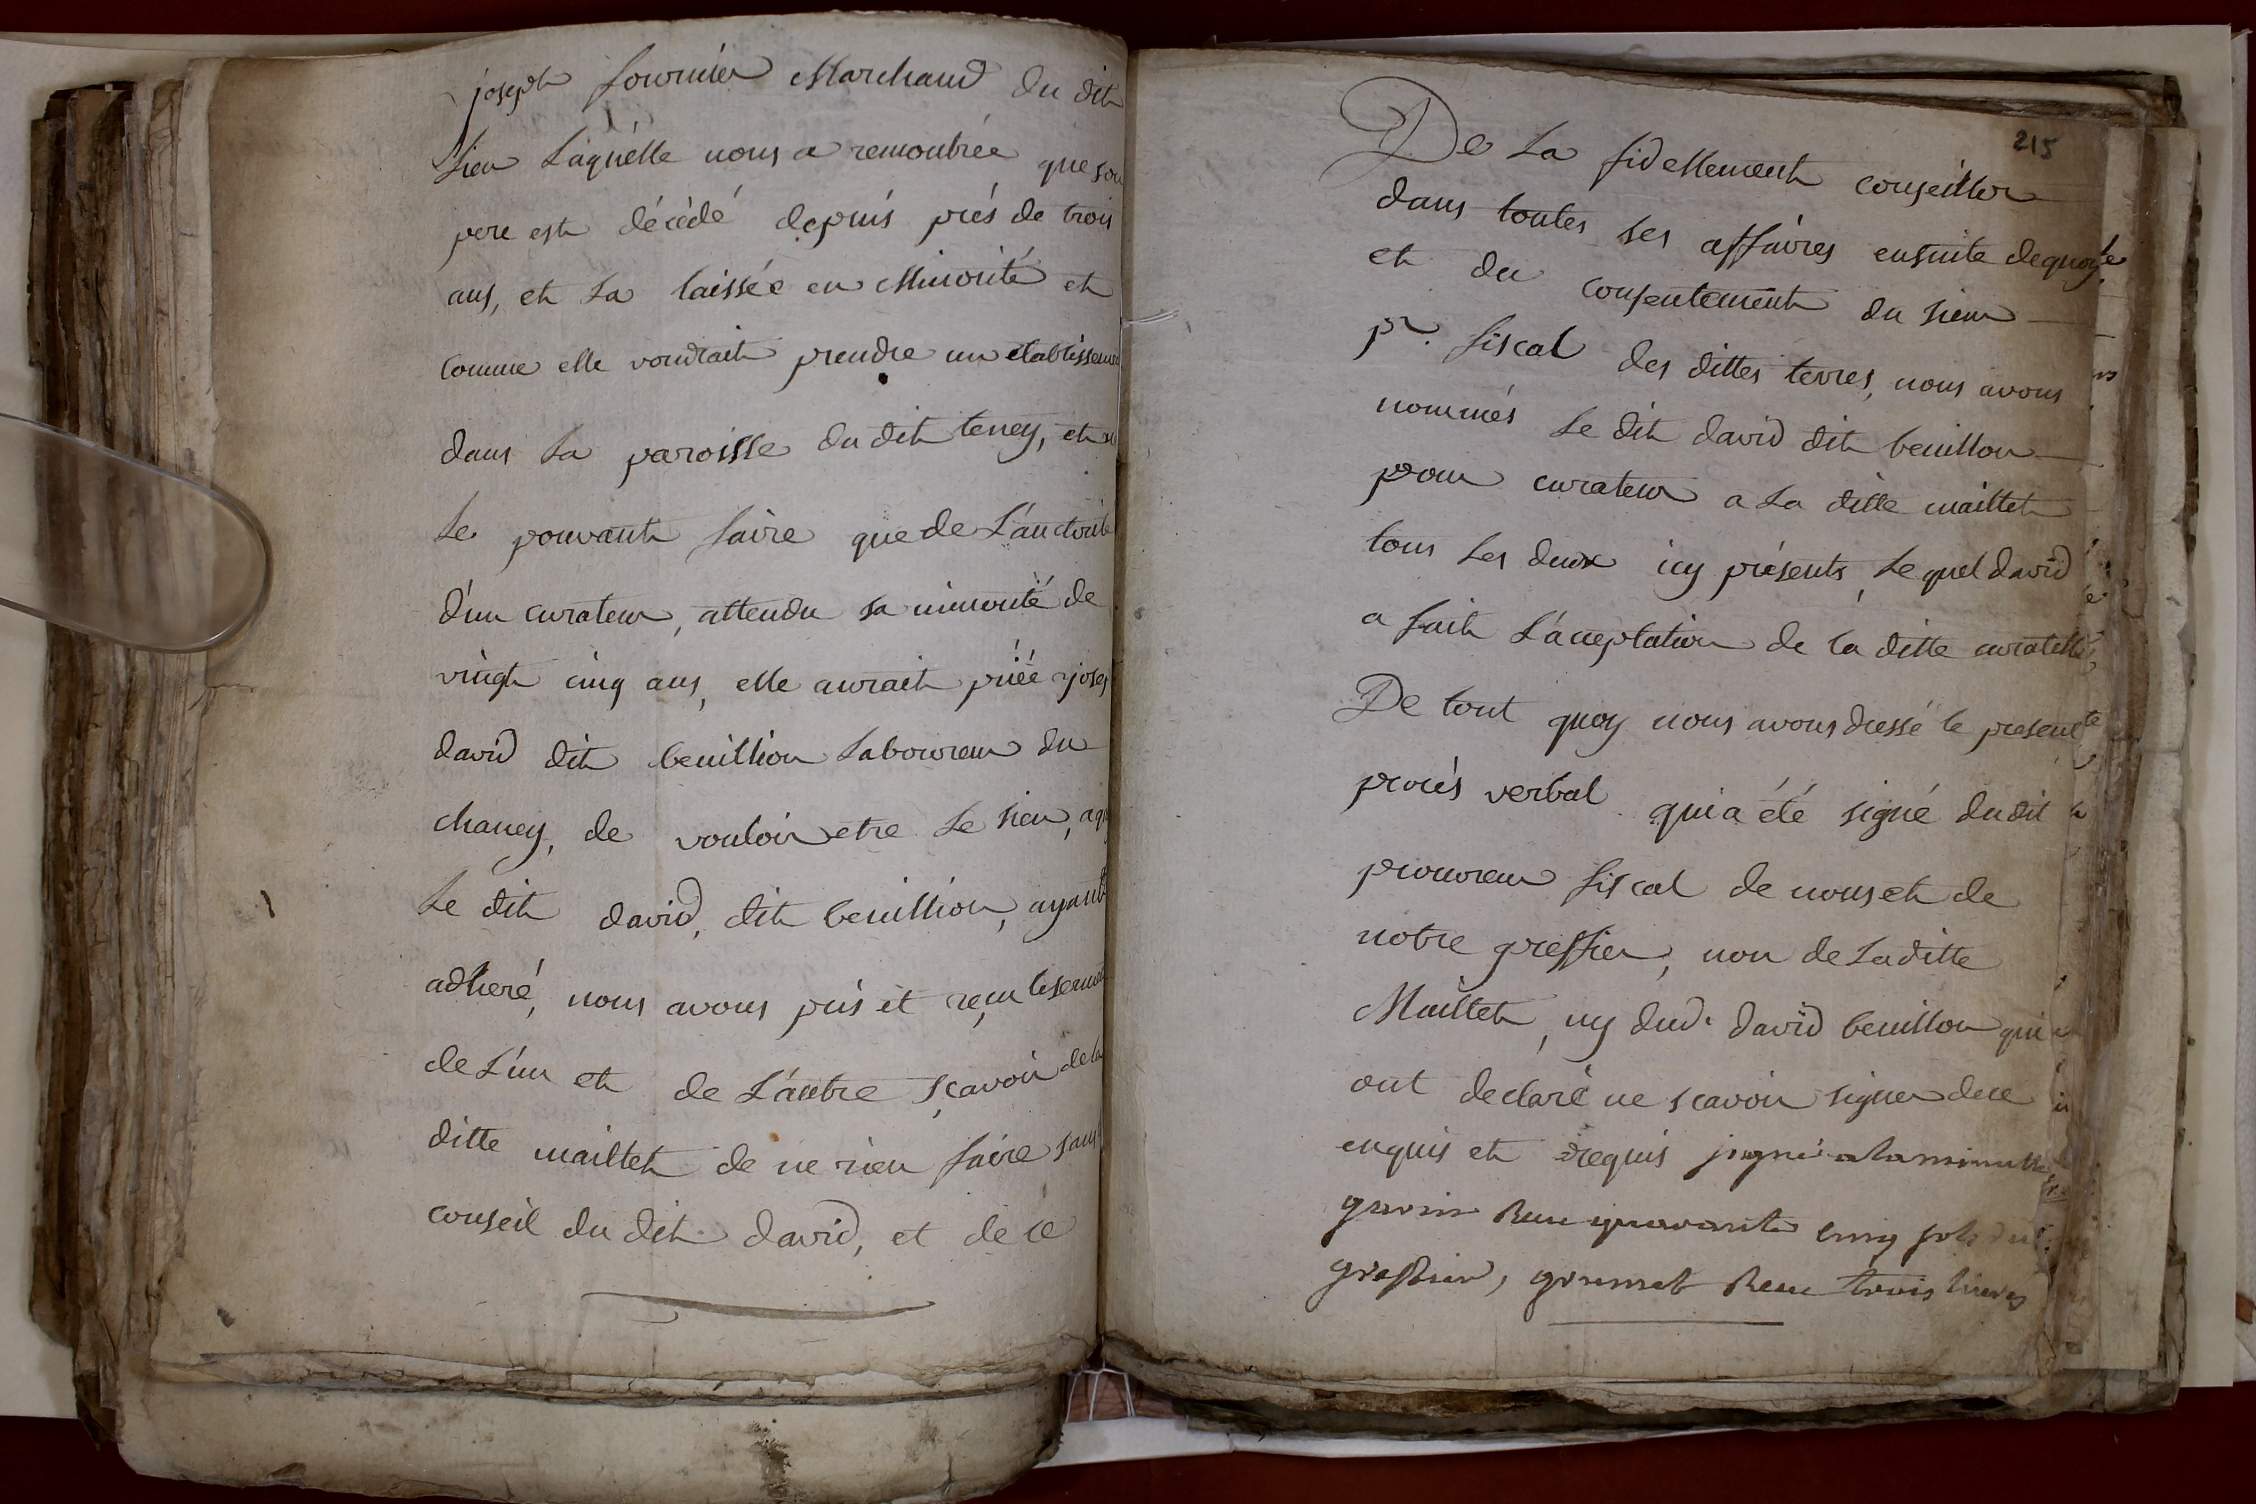 joseph fournier Marchand du dit
Lieu Laquélle nous a remontrée que son
pere est décédé depuis prés de trois
ans, et La laissée en Minorité et
comme elle voudrait prendre un établissem
dans La paroisse du dit teney, et ne
Le pouvant faire que de L'auctorité
d'un curateur, attendu sa minorité de
vingt cinq ans, elle aurait priéé josep
david dit beuillion Laboureur du
chaney, de vouloir etre Le sien, a quoy
Le dit david, dit beuillion, ayant
adheré, nous avons pris et reçu lesermen
de L'un et de L'autre sçavoir de la
ditte maillet de ne rien faire sans
conseil du dit david, et de ce
215
De La fidellement conseiller
dans toutes ses affaires ensuite dequoy
et du consentement du sieur
pr. fiscal des dittes terres, nous avons
nommés Le dit david dit beuillon
pour curateur a La ditte maillet
tous Les deux icy présents, Le quel david
a fait L'acceptation de la ditte curatelle
De tout quoy nous avons dressé le present
procés verbal qui a été signé dudit
procureur fiscal de nous et de
notre greffier, non de Laditte
Maillet, ny dud. david beuillon qui
ont declaré ne scavoir signer de ce
enquis et requis signé a la minutte
Reçu quarante cinq sols
greffier, Reçu trois livres